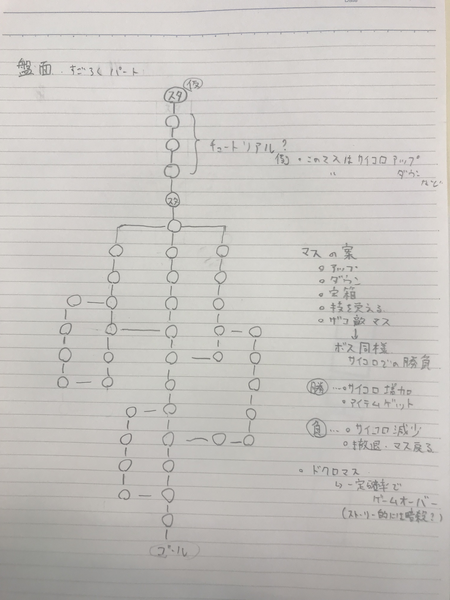 盤面 すごろくパート
スタ 仮
チュートリアル？
例 ・このマスはサイコロアップ
〃 ダウン
など
スタ
マスの案
○ アップ
○ ダウン
○ 宝箱
○ 技を覚える
○ ザコ敵マス
↓
ボス同様
サイコロでの勝負
勝 …○サイコロ増加
○アイテムゲット
負 …○サイコロ減少
○撤退・マス戻る
○ ドクロマス
↳ 一定確率で
ゲームオーバー
(ストーリー的には暗殺？)
ゴール